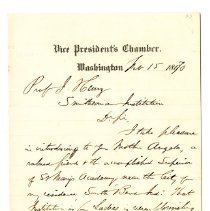 Vice President's Chamber.
Washington, Feb 15 1870
Prof J. Henry
Smithsonian Institution
D. Sir
I take pleasure
in introducing to you Mother Angela, a
valued friend & the accomplished Superior
of St Mary's Academy near the City of
my residence South Bend Ind: That
Institution for Ladies is very flourishing